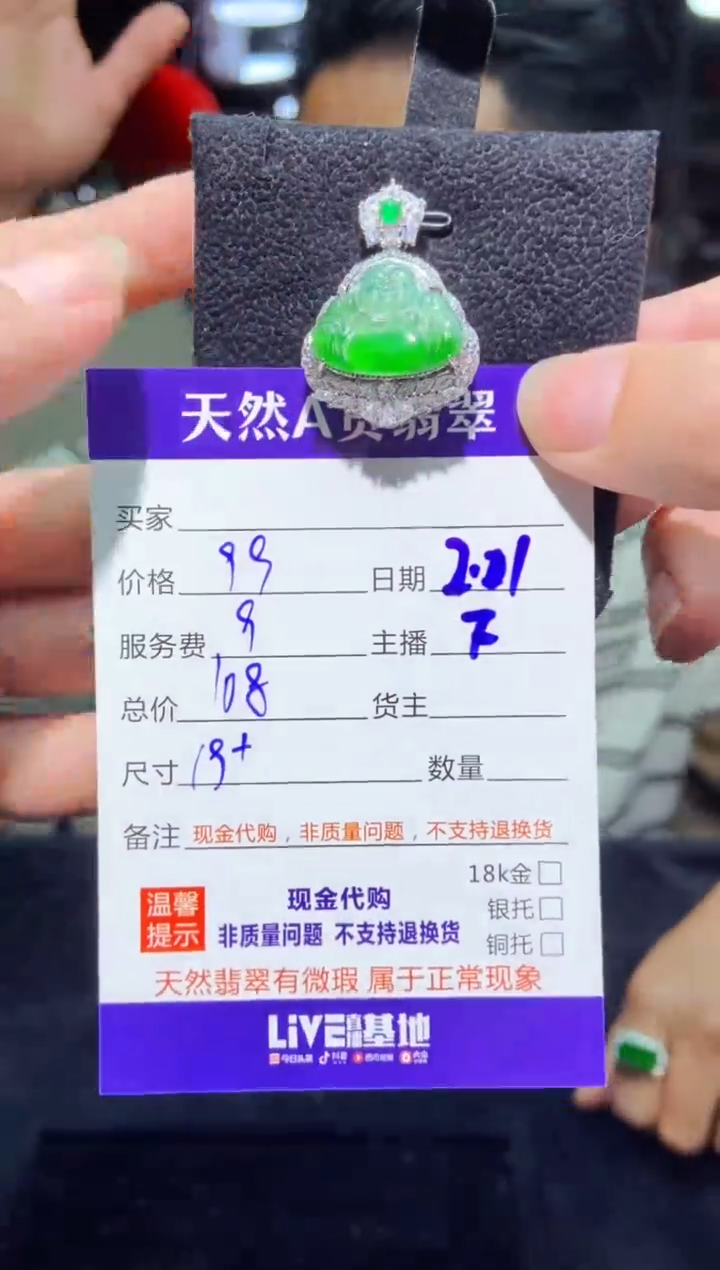 天然A货翡翠
买家
价格 99 日期 2.21
服务费 9 主播 下
总价 108 货主
尺寸 19+ 数量
备注 现金代购，非质量问题，不支持退换货
18k金
温馨提示 现金代购 银托
非质量问题 不支持退换货 铜托
天然翡翠有微瑕 属于正常现象
LiVE直播基地
今日头条 抖音 西瓜视频 火山